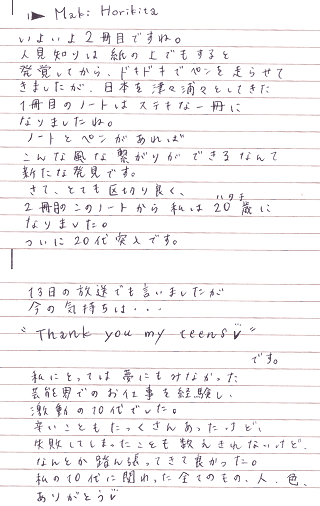 Maki Horikita
いよいよ2冊目ですね。
人見知りは紙の上でもすると
発覚してから、ドキドキでペンを走らせて
きましたが、日本を津々浦々としてきた
1冊目のノートはステキな一冊に
なりましたね。
ノートとペンがあれば
こんな風な繋がりができるなんて
新たな発見です。
さて、とても区切り良く、
2冊目のこのノートから私は20歳に
ハタチ
なりました。
ついに20代突入です。
13日の放送でも言いましたが
今の気持ちは・・・
"Thank you my teens♡"
です。
私にとっては夢にもみなかった
芸能界でのお仕事を経験し、
激動の10代でした。
辛いこともたっくさんあったけど、
失敗してしまったことも数えきれないけど、
なんとか踏ん張ってきて良かった。
私の10代に関わった全てのもの、人、色、
ありがとう♡